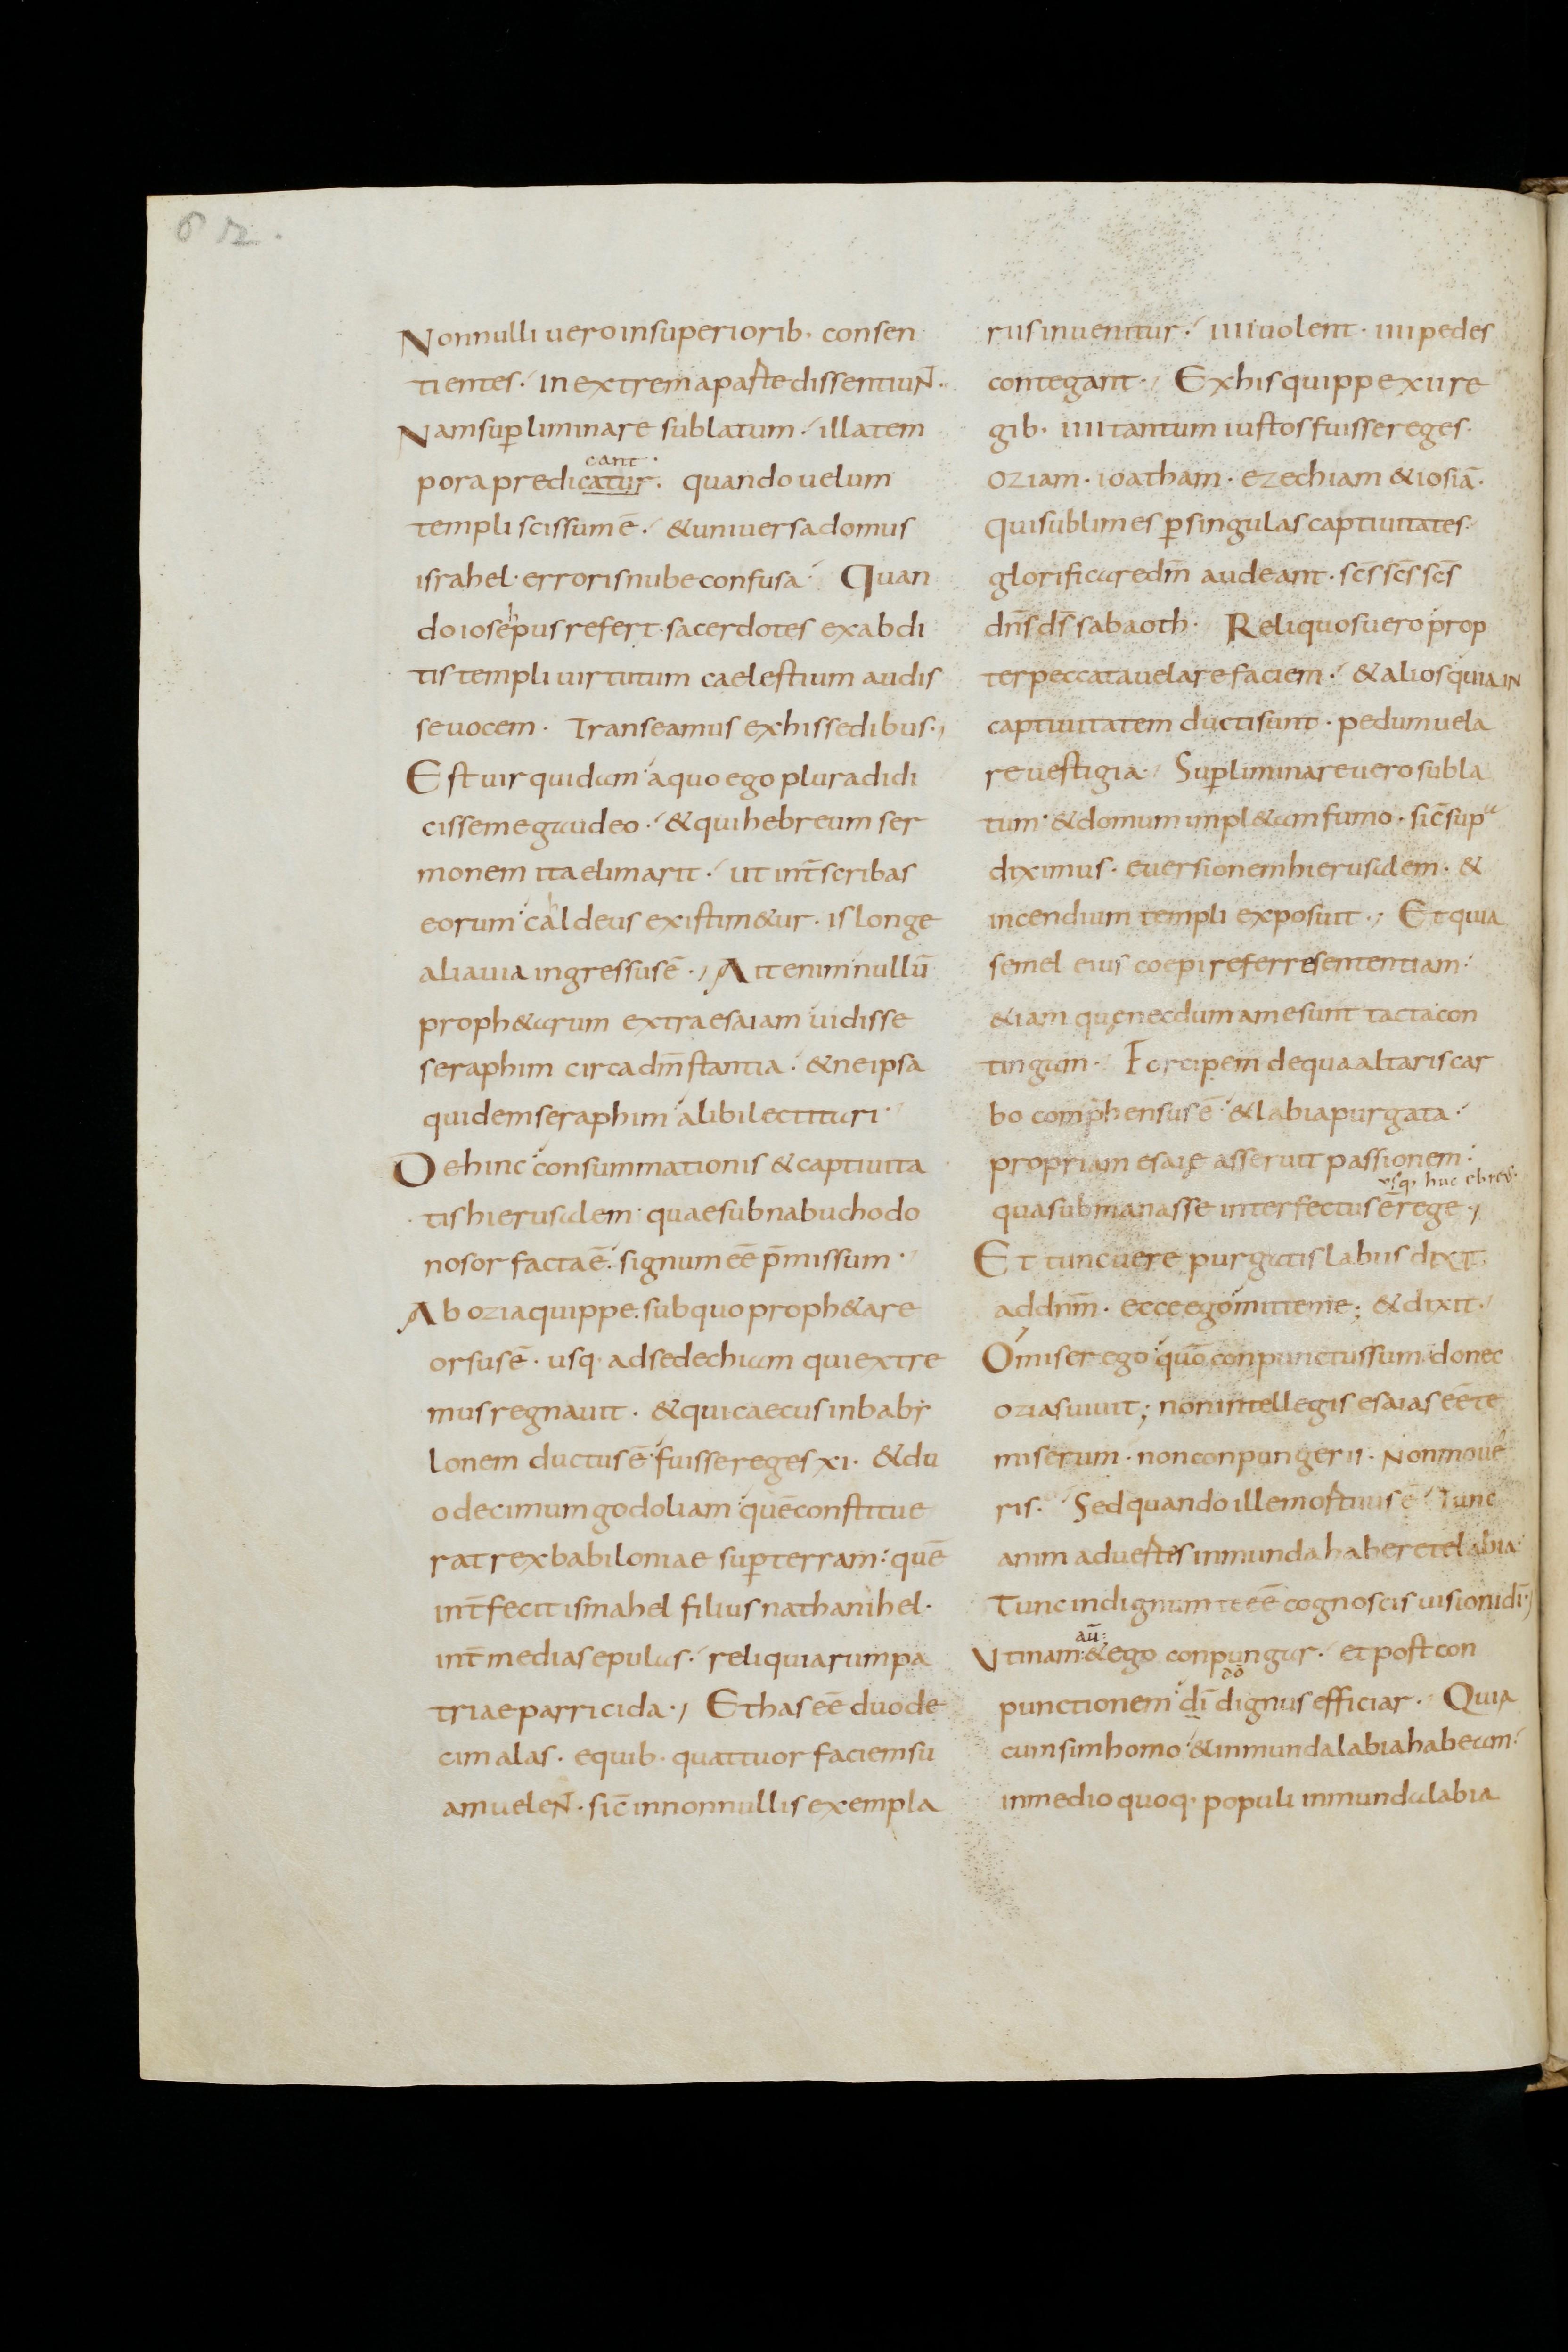 6 12.
Nonnulli uero insuperiorib· consen
tientes· in extrema parte dissentiuNt·
Nam sup̱liminare sublatum· illa tem
cant·
pora predicatur· quando uelum
templi scissum ē· & uniuersa domus
israhel· erroris nube confusa· Quan
do iosephus refert· sacerdotes ex abdi
tis templi uirtutum caelestium audis
se uocem· Transeamus ex his sedibus·,
Est uir quidam· a quo ego plura didi
cisse me gaudeo· & qui hebreum ser
monem ita elimarit· ut int̄ scribas
eorum· chaldeus existim&ur· is longe
alia uia ingressus ē·, Ait enim nullū
proph&arum extra esaiam uidisse
seraphim circa dm̄ stantia· & ne ipsa
quidem seraphim alibi lectitari·
Dehinc consummationis & captiuita
tis hierusalem· quae sub nabuchodo
nosor facta ē· signum eē p̄missum·
Ab ozia quippe· sub quo proph&are
orsus ē· usq· ad sedechiam qui extre
mus regnauit· & qui caecus in baby
lonem ductus ē· fuisse reges xi· & du
odecimum godoliam· quē constitue
rat rex babiloniae sup̱ terram: quē
int̄fecit ismahel filius nathanihel·
int̄ medias epulas· reliquiarum pa
triae parricida·, Et has eē duode
cim alas· e quib· quattuor faciem su
am ueleNt· sic̄ in nonnullis exempla
riis inuenitur· iiii uolent· iiii pedes
contegant· Ex his quippe xii re
gib· iiii tantum iustos fuisse reges·
oziam· ioatham· ezechiam & iosiā·
qui sublimes p̱ singulas captiuitates·
glorificare dm̄ audeant· sc̄s sc̄s sc̄s
dn̄s ds̄ sabaoth· Reliquos uero prop
ter peccata uelare faciem· & alios quia in
captiuitatem ducti sunt· pedum uela
re uestigia· Sup̱liminare uero subla
tum· & domum impl&am fumo· sic̄ sup a
diximus· euersionem hierusalem· &
incendium templi exposuit·, Et quia
semel eius coepi referre sententiam·
&iam quę necdum a me sunt tacta con
tingam· Forcipem de qua altaris car
bo comp̄hensus ē· & labia purgata·
propriam esaię asseruit passionem:
usq· huc ebreus·
qua sub manasse interfectus ē rege·,
Et tunc uere purgatis labiis dixit
ad dnm̄· ecce ego mitte me; & dixit·
O miser ego· quō conpunctus sum· donec
ozias uiuit; non intellegis esaias eē te
miserum· non conpungeris· Non moue
ris· Sed quando ille mortuus ē· Tunc
anim aduertes inmunda habere te labia·
Tunc indignum te eē cognoscis uisioni dī·,
aū:
Utinam: & ego conpungar· et post con
dō
punctionem· dī dignus efficiar· Quia
cum sim homo· & inmunda labia habeam·
in medio quoq· populi inmunda labia